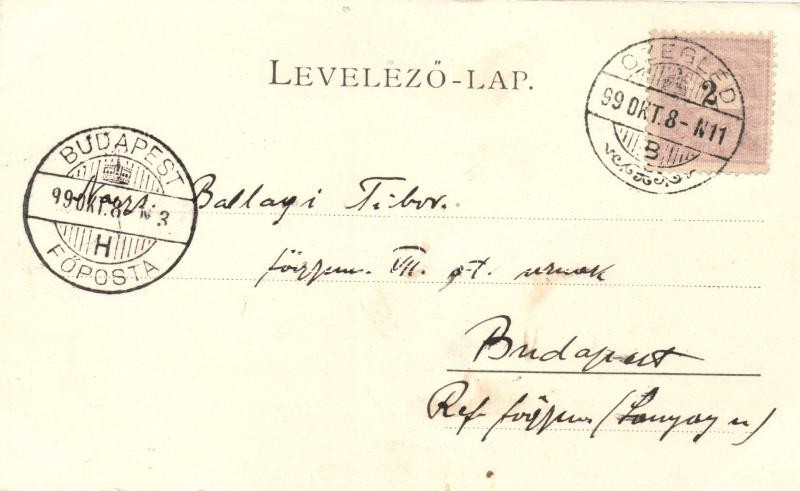 LEVELEZŐ-LAP.
CZEGLÉD
2
99 OKT. 8 - N11
B
BUDAPEST
99 OKT. 8 N 3
H
FŐPOSTA
Nagys. Ballagi Tibor.
főgymn. VII. o. t. urnak
Budapest
Ref főgymn (Lónyay u)